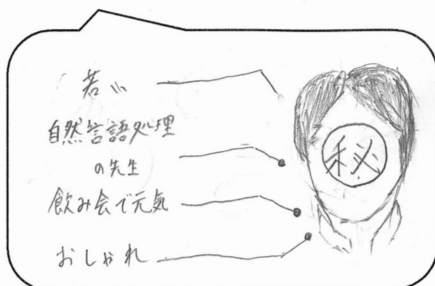 若い
自然言語処理
の先生
飲み会で元気
おしゃれ
秘